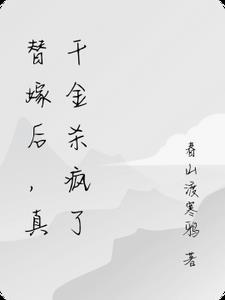 替嫁后，真
千金杀疯了
春山渡寒鸦 著